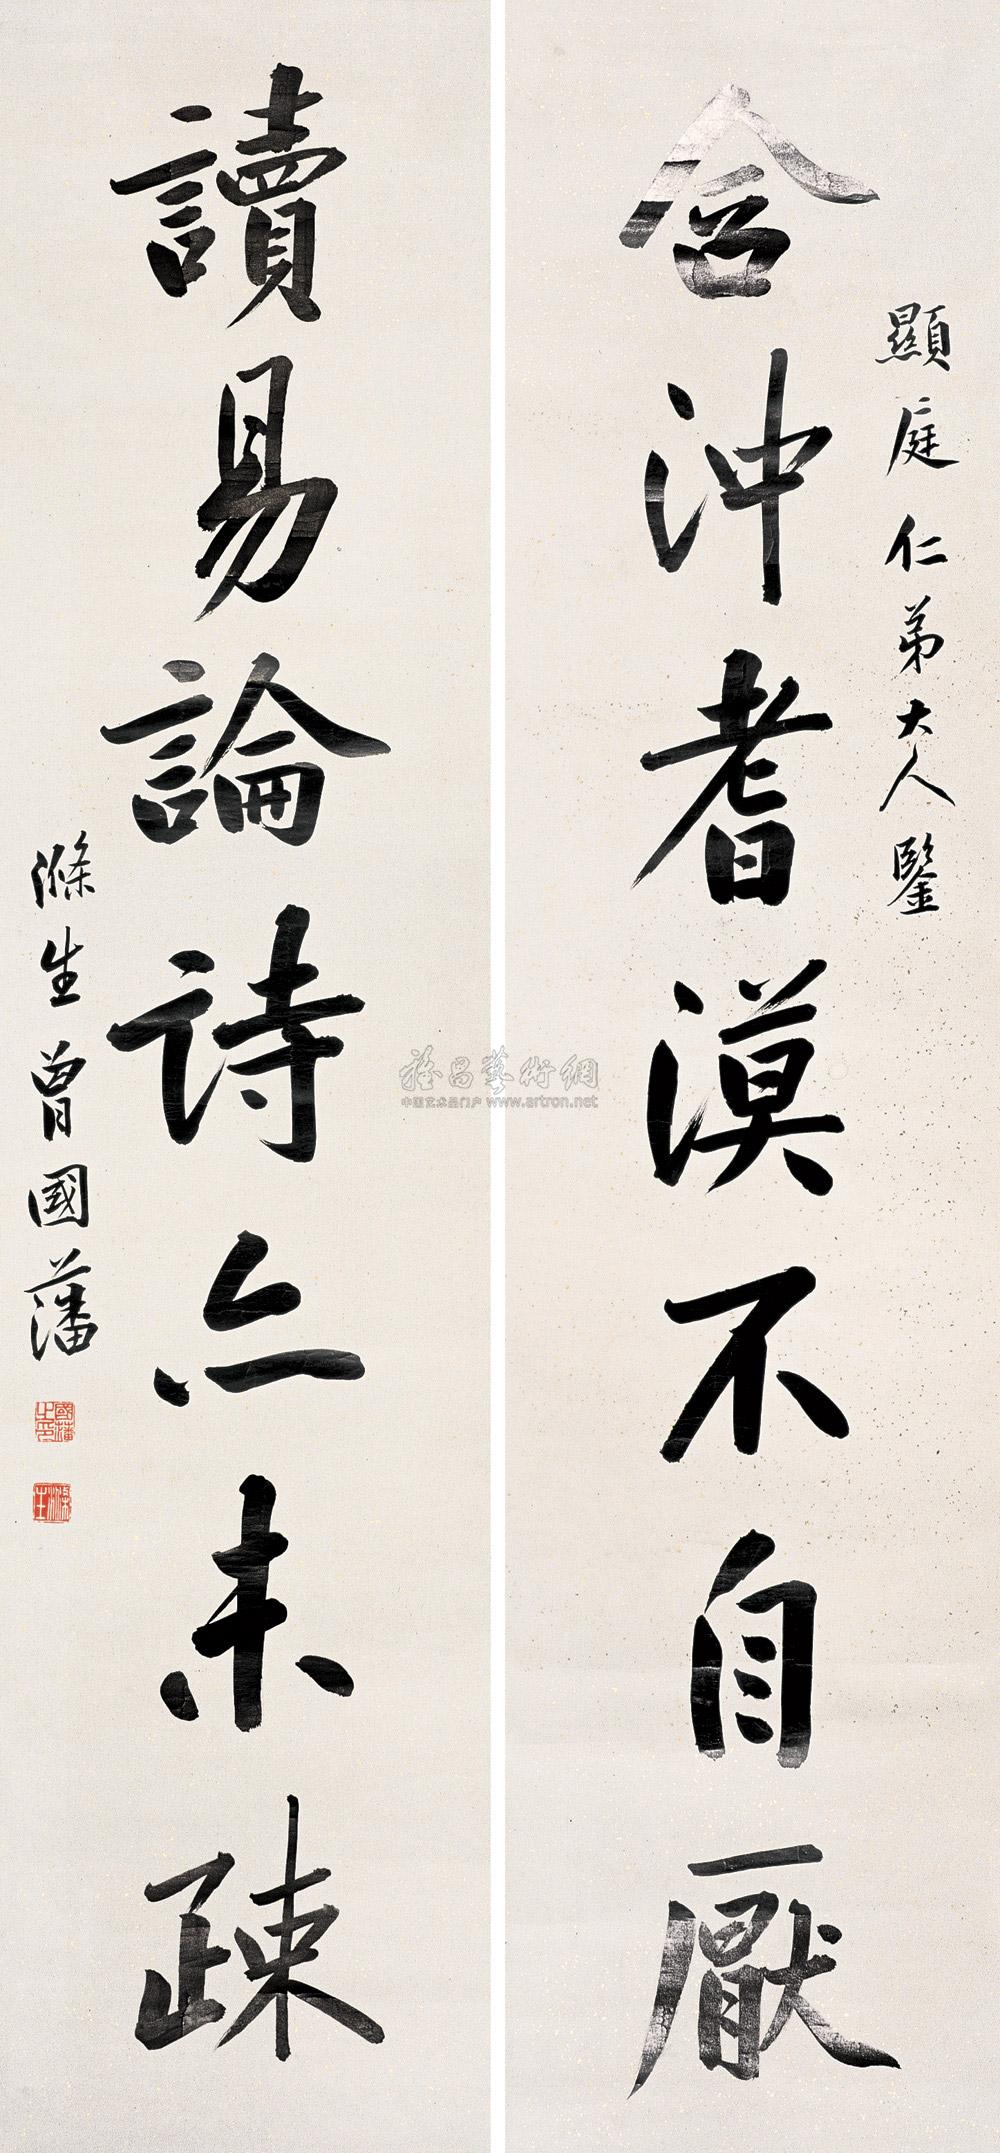 顯庭仁弟大人鑒
含沖耆漠不自厭
讀易論詩亦未疎
滌生曾國藩
國藩之印
滌生
雅昌藝術網
中国艺术品门户 www.artron.net